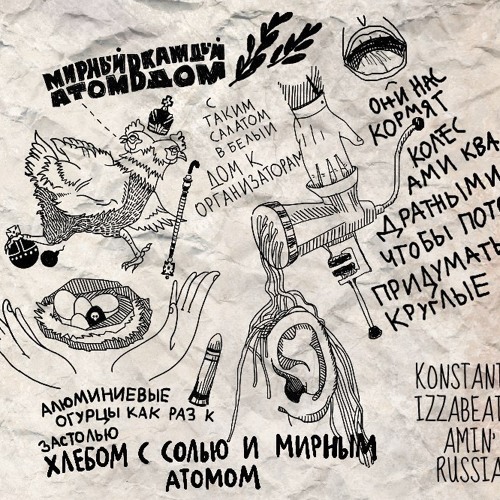 МИРНЫЙ В КАЖДЫЙ
АТОМ ДОМ
С
ТАКИМ
САЛАТОМ
В БЕЛЫЙ
ДОМ К
ОРГАНИЗАТОРАМ
ОНИ НАС
КОРМЯТ
КОЛЕС
АМИ КВА
ДРАТНЫМИ
ЧТОБЫ ПОТО
ПРИДУМАТЬ
КРУГЛЫЕ
АЛЮМИНИЕВЫЕ
ОГУРЦЫ КАК РАЗ К
ЗАСТОЛЬЮ
ХЛЕБОМ С СОЛЬЮ И МИРНЫМ
АТОМОМ
KONSTANT
IZZABEAT
AMIN,
RUSSIA